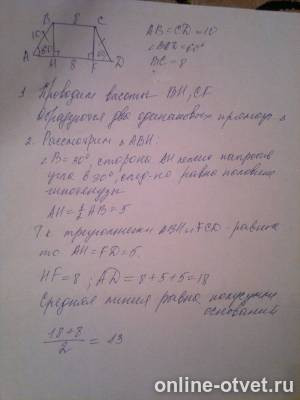 B 8 C
AB = CD = 10
∠BAD = 60°
BC = 8
10
A 60° H 8 F D
1. Проводим высоты BH, CF.
Образуется два одинаковых прямоуг. △
2. Рассмотрим △ABH:
∠B = 30°, сторона AH лежит напротив
угла в 30°, след-но равна половине
гипотенузы
AH = ½ AB = 5
Т.к треугольники ABH и FCD - равны
то AH = FD = 5.
HF = 8; AD = 8 + 5 + 5 = 18
Средняя линия равна полусумме
оснований
18 + 8
2 = 13
online-otvet.ru